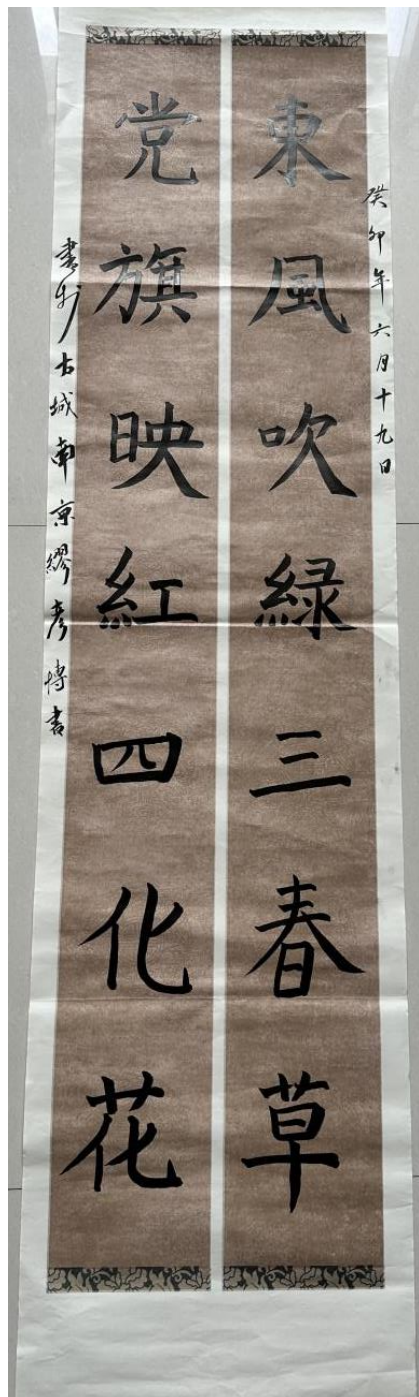 癸卯年六月十九日
東風吹緑三春草
党旗映紅四化花
書於古城南京繆彥博書